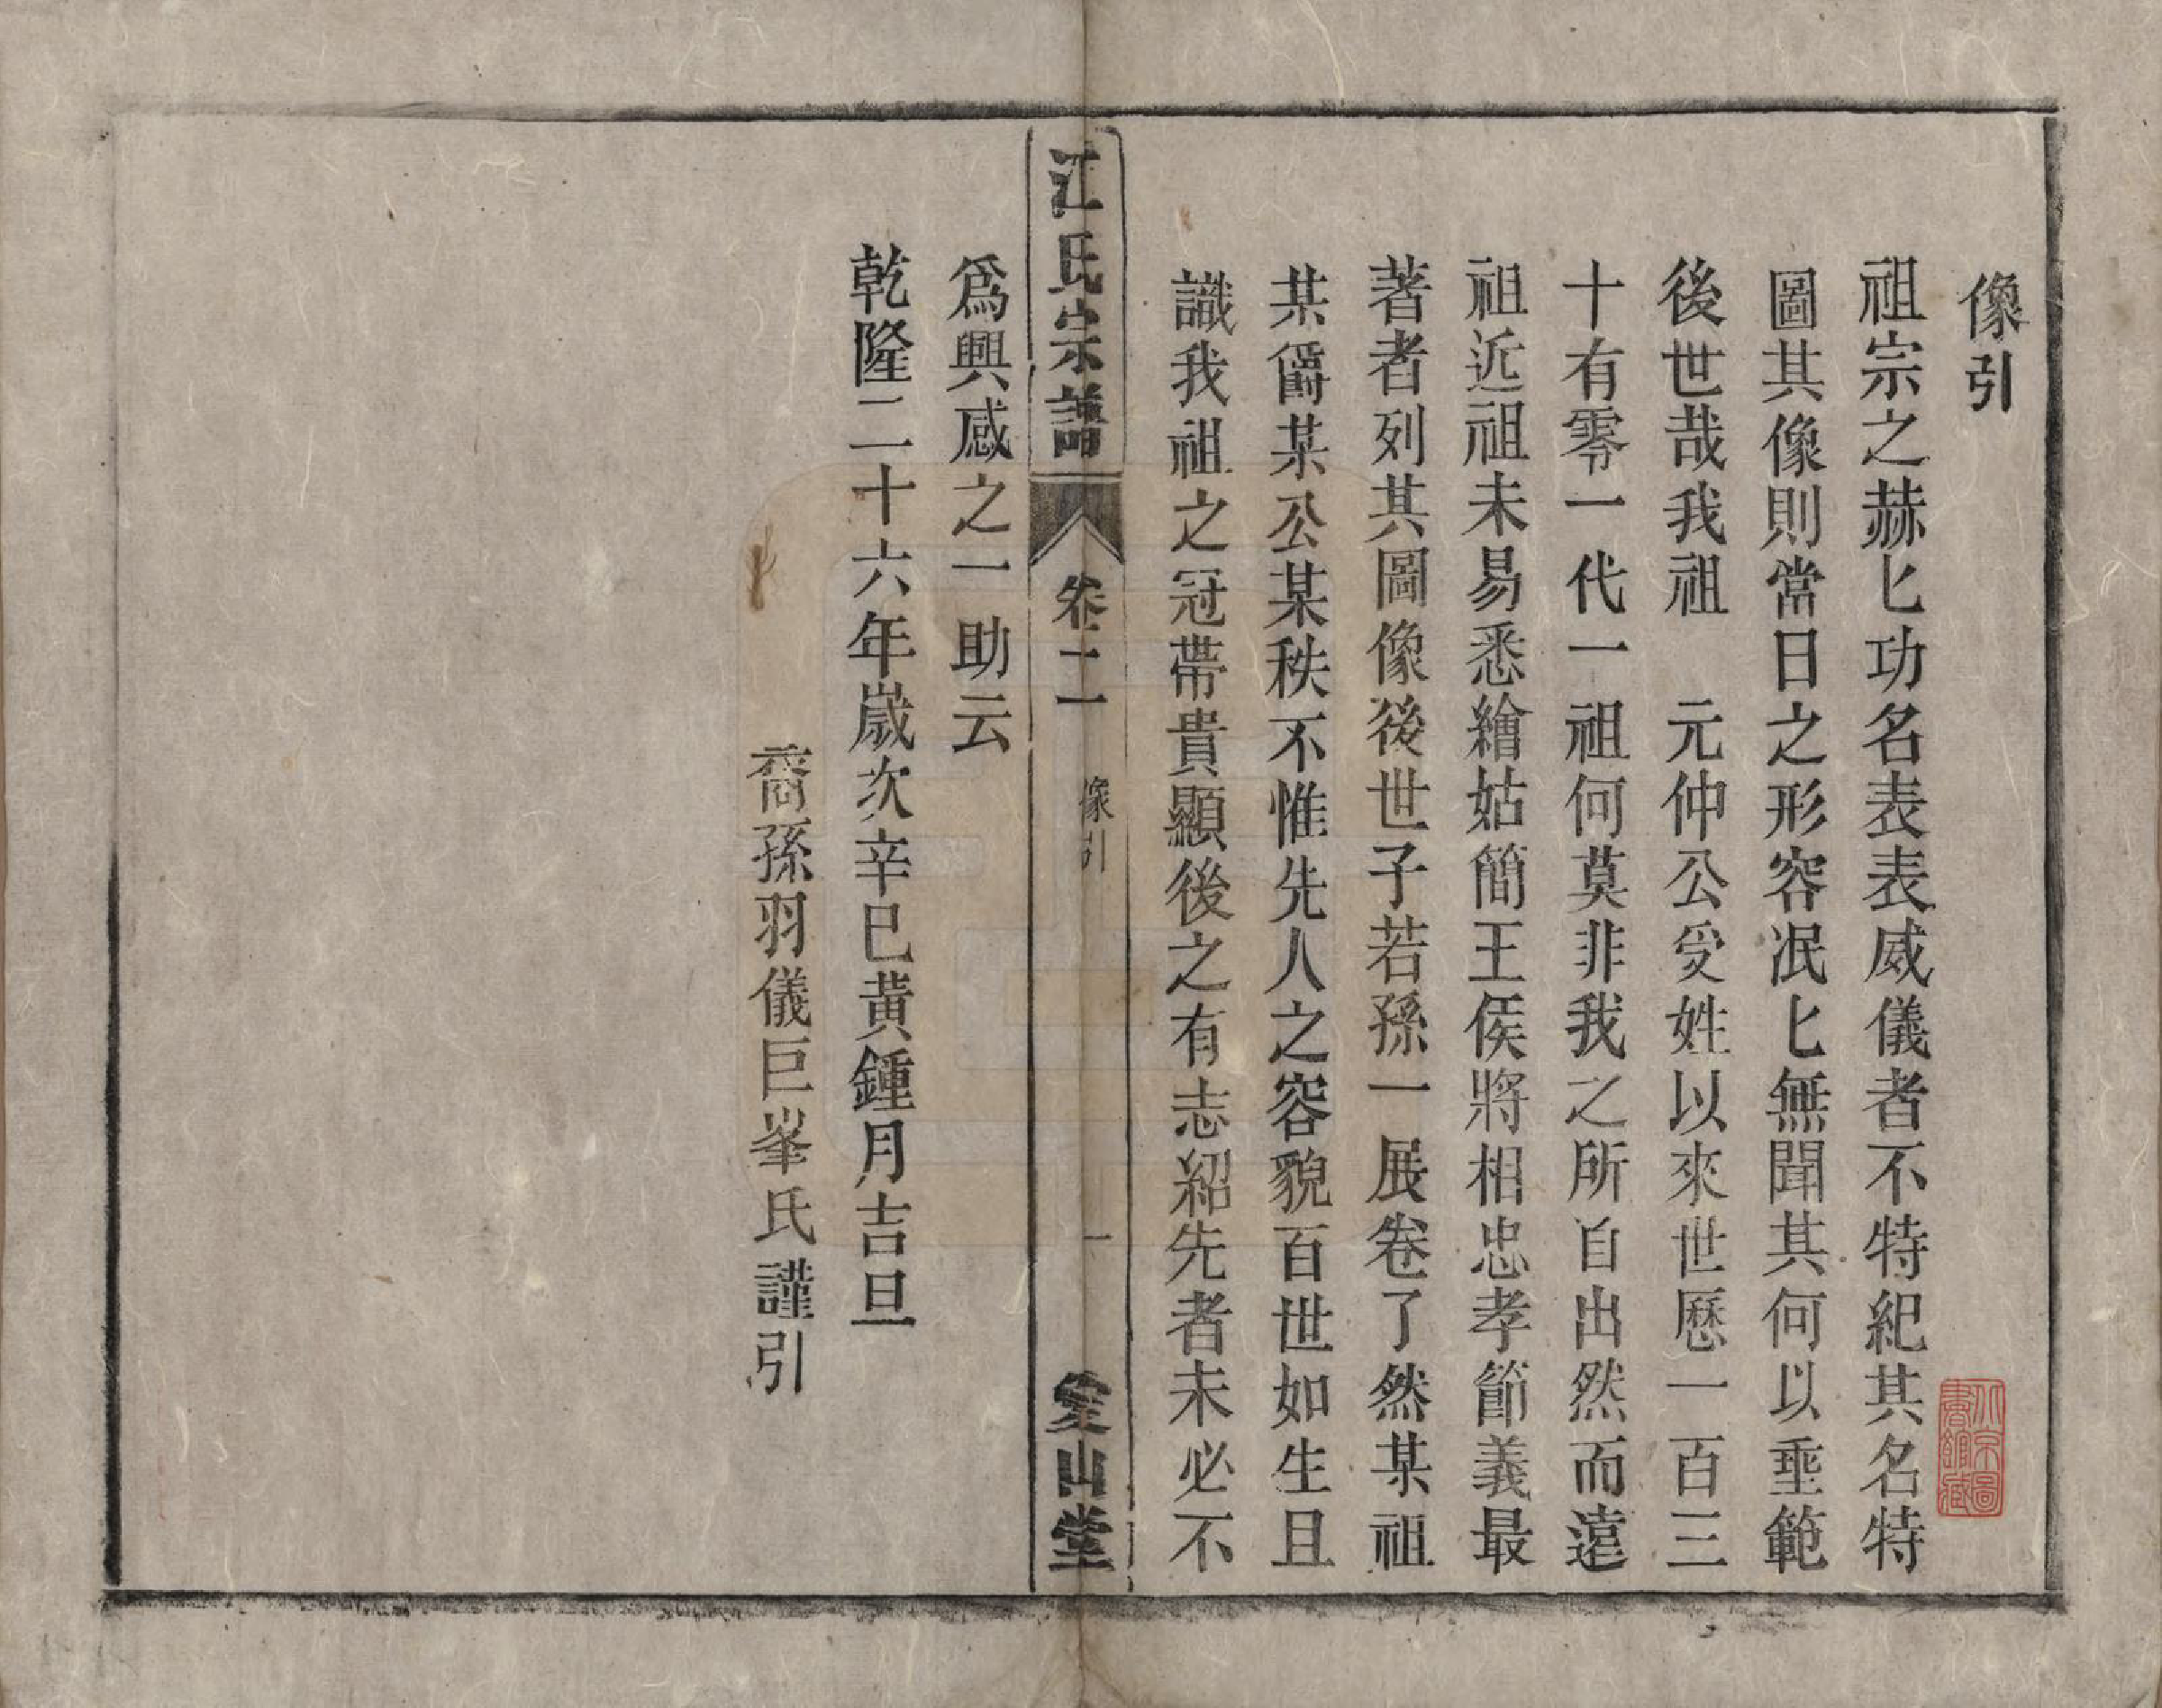 像引
祖宗之赫匕功名表表威儀者不特紀其名特
圖其像則當日之形容泯匕無聞其何以垂範
後世哉我祖　元仲公受姓以來世歷一百三
十有零一代一祖何莫非我之所自出然而遠
祖近祖未易悉繪姑簡王侯將相忠孝節義最
著者列其圖像後世子若孫一展卷了然某祖
某爵某公某秩不惟先人之容貌百世如生且
識我祖之冠帶貴顯後之有志紹先者未必不
江氏宗譜　卷二　像引　一　愛山堂
爲興感之一助云
乾隆二十六年歲次辛巳黃鍾月吉旦
裔孫羽儀巨峯氏謹引